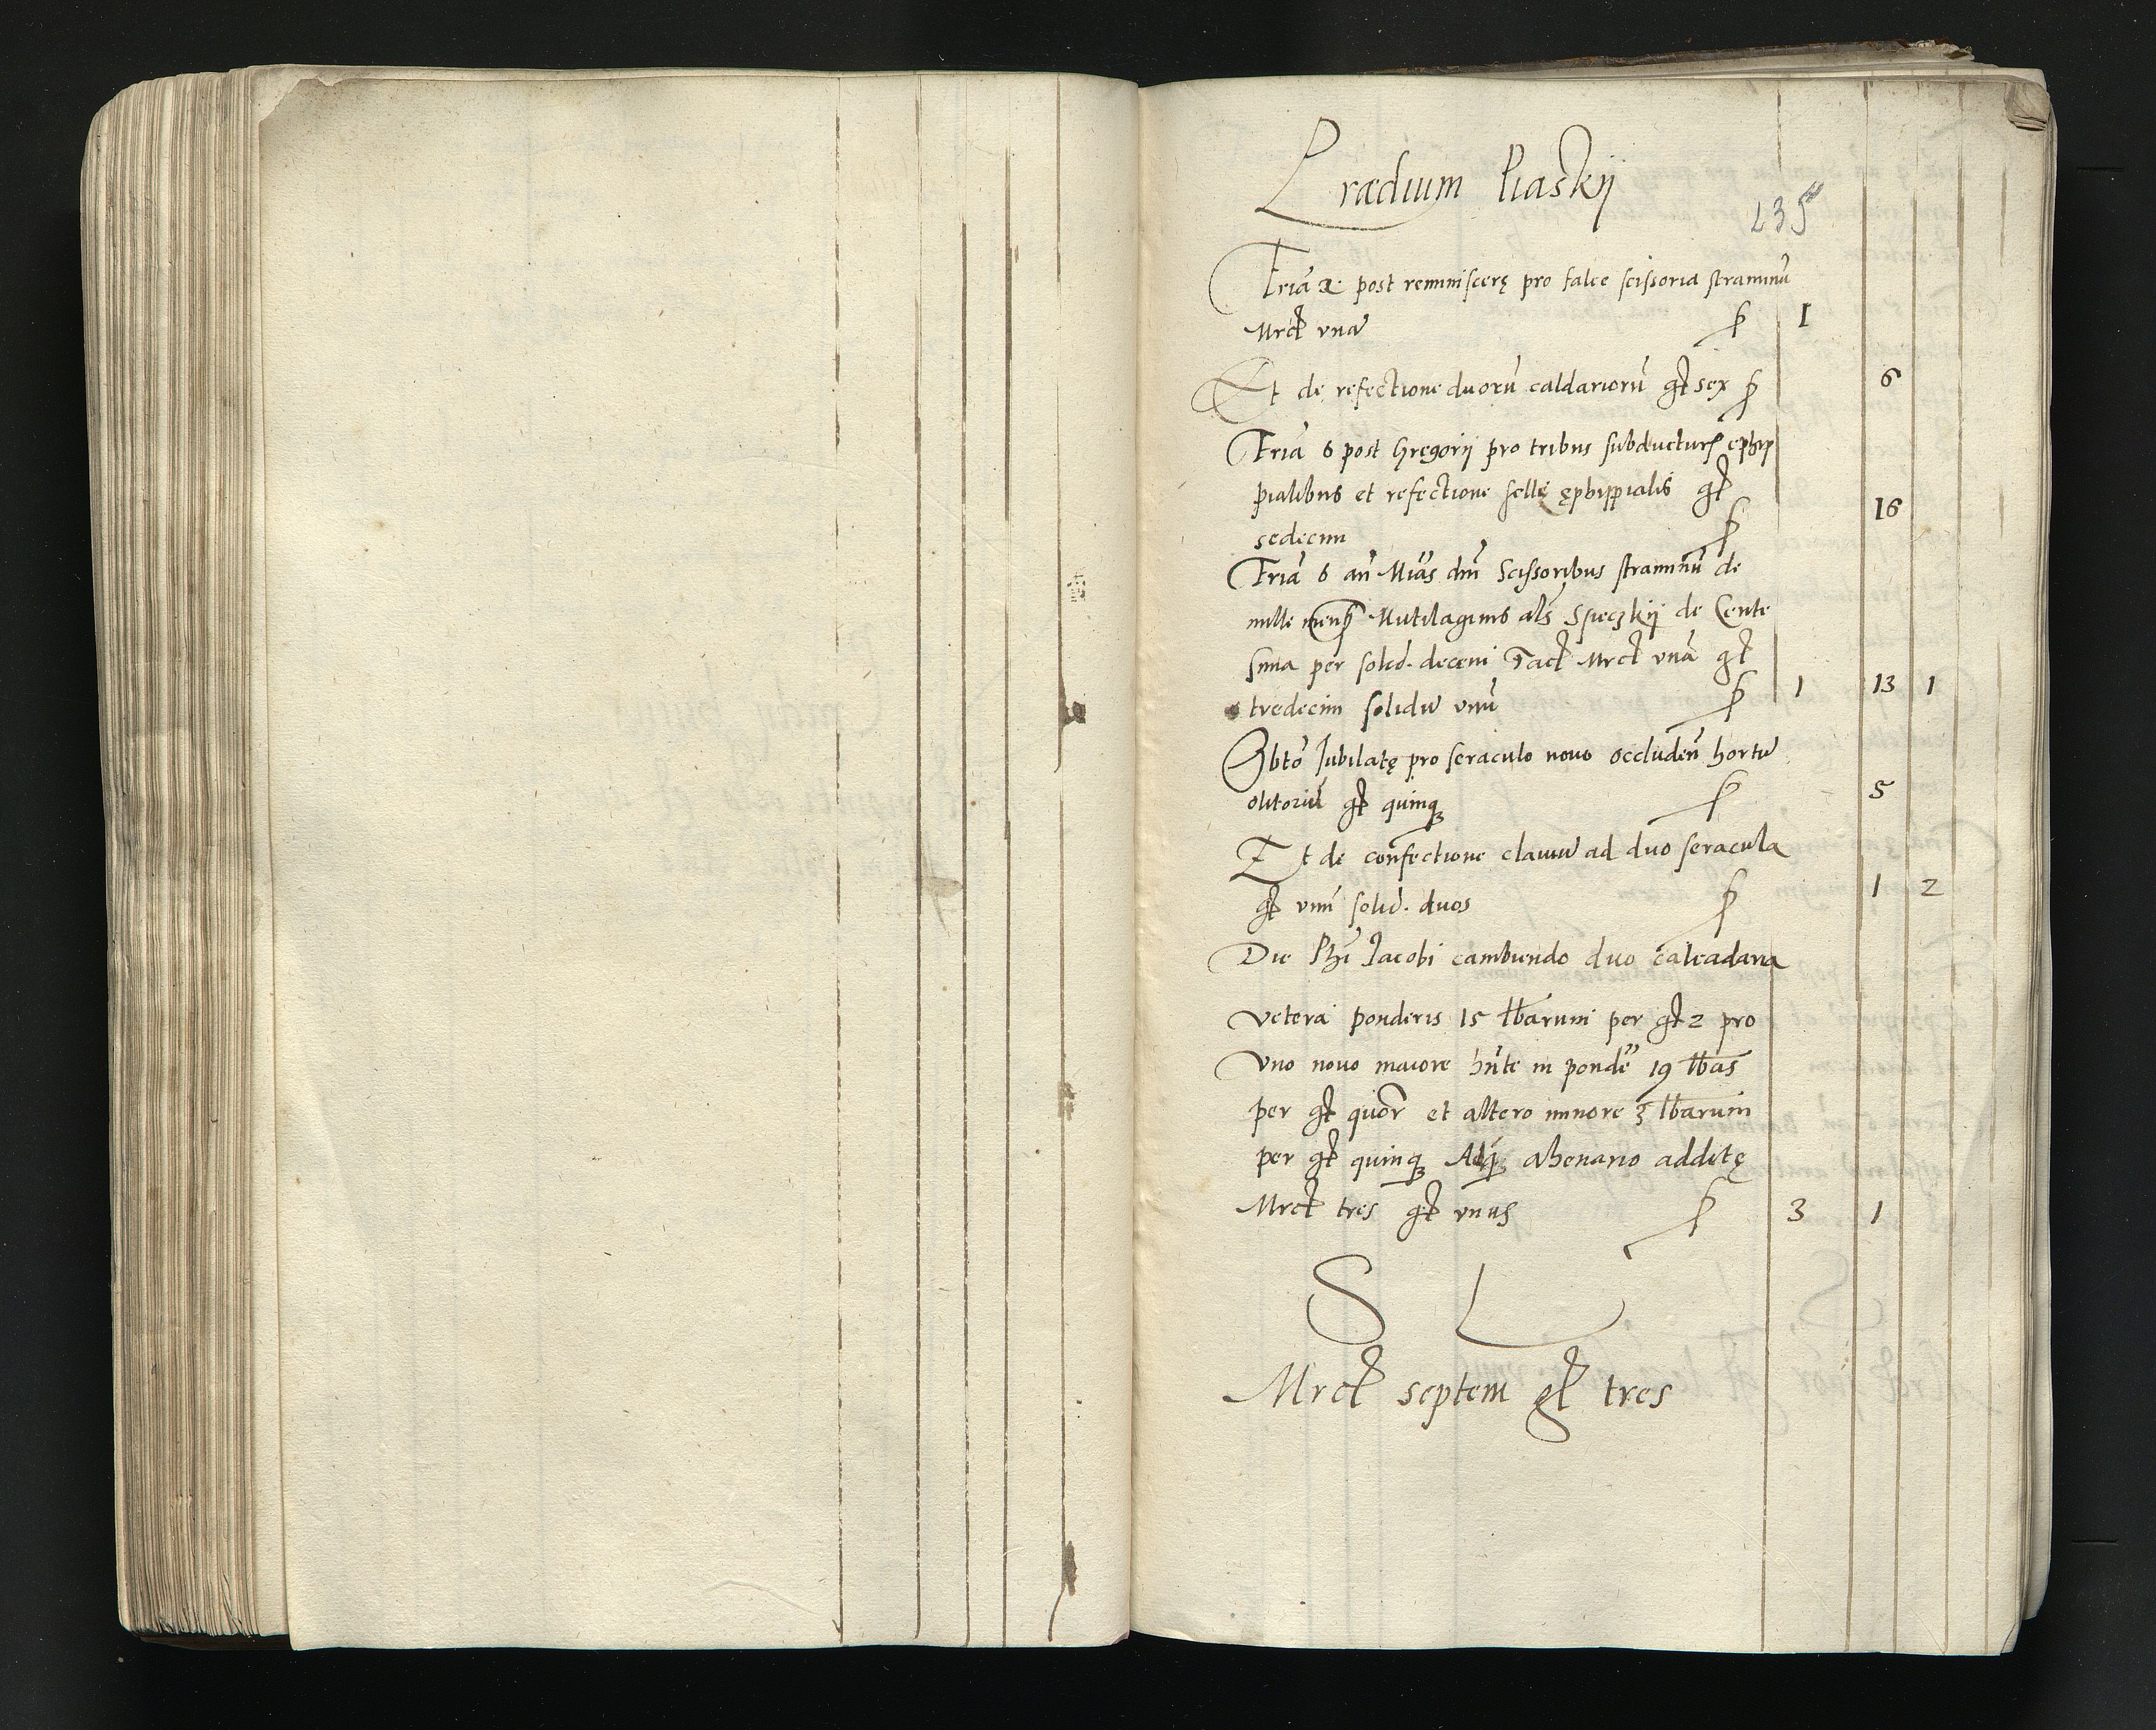 Prædium Piaskij
235
Fria 2 post reminiscerę pro falce scissoria straminū
Mrct vnā ꝑ 1
Et de refectione duorū caldariorū gt sex ꝑ 6
Fria 6 post Gregorij pro tribus subducturis ephip
pialibus et refectione sellę ephippialis gt
sedecim ꝑ 16
Fria 6 an Mias dni Scissoribus straminū de
mille Mutilaginis als Sieczkij de Cente
sima per solid. decem fact Mrct vnā gt
tredecim solidū vnū ꝑ 1 13 1
Sbto Jubilatę pro seraculo nouo occluden hortū
olitoriū gt quinqꝫ ꝑ 5
Et de confectione clauiū ad duo seracula
gt vnū solid. duos ꝑ 1 2
Die Phi Jacobi cambiendo duo caldaria
vetera ponderis 15 lbarum per gt 2 pro
vno nouo maiore hnte in ponde 19 lbas
per gt quor et altero minore 3 lbarum
per gt quinqꝫ ahenario additę
Mrct tres gt vnus ꝑ 3 1
S L
Mrct septem gt tres